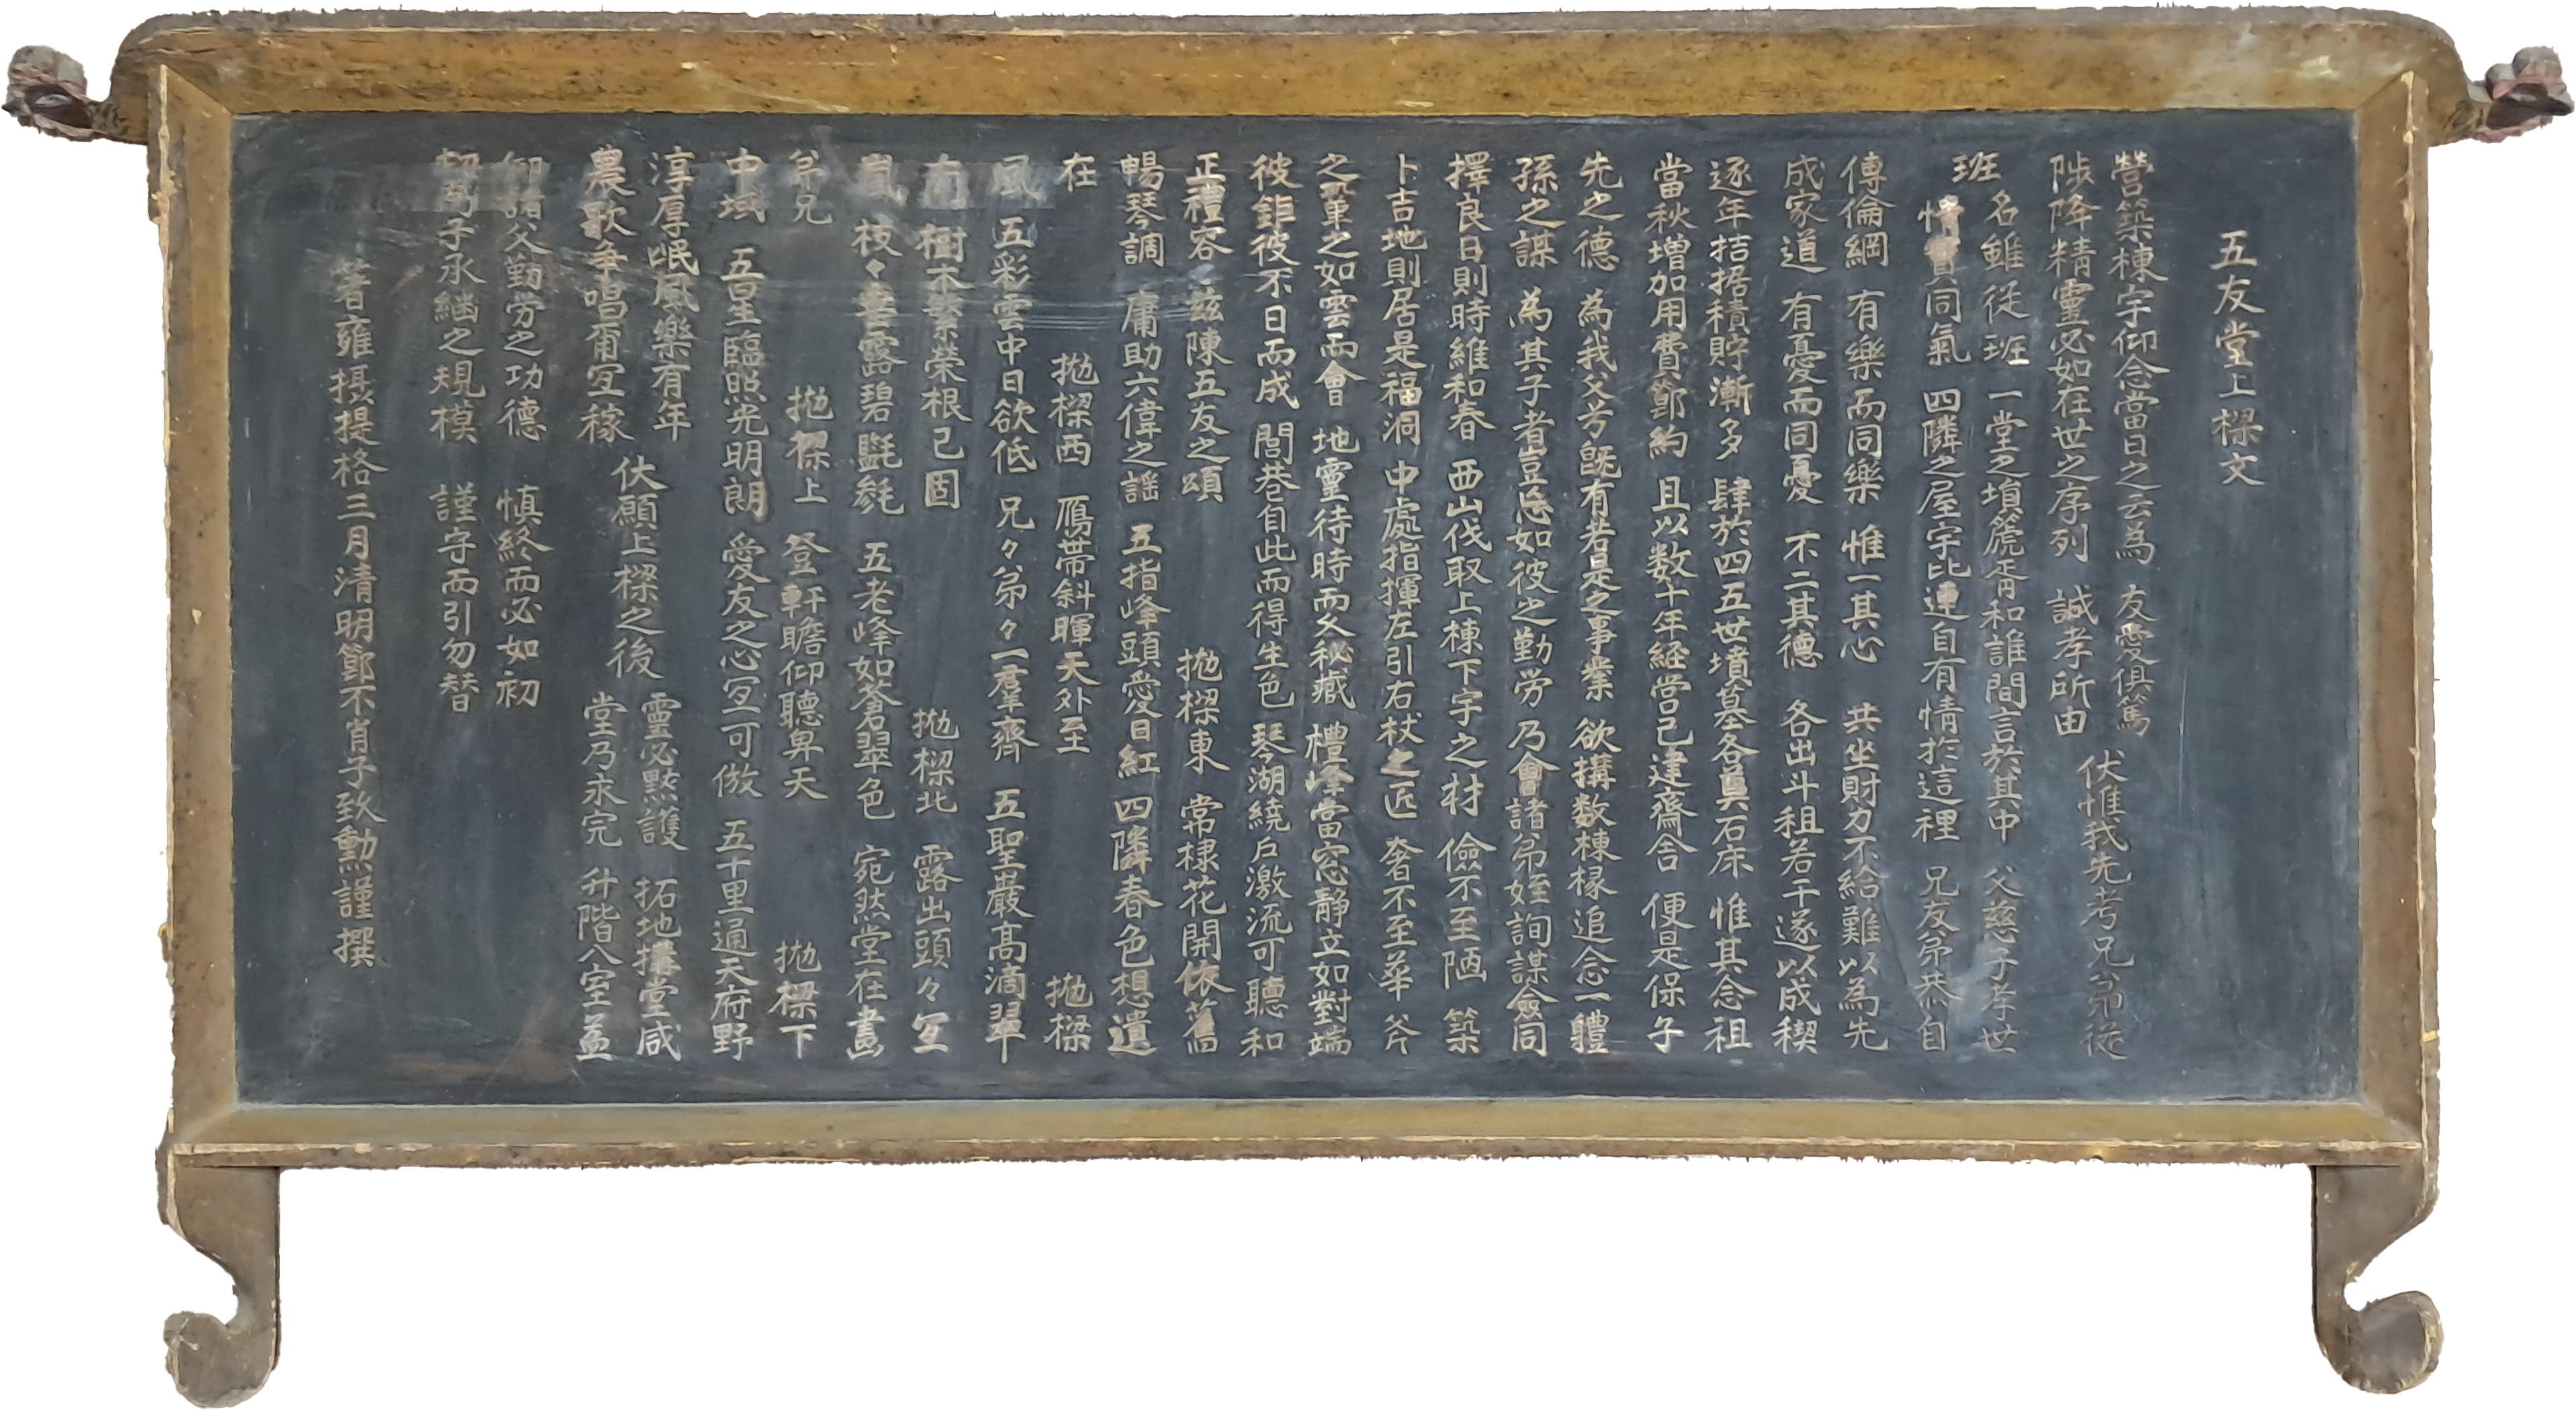 五友堂上樑文
營築棟宇仰念當日之云為 友愛俱篤
陟降精靈必如在世之序列 誠孝所由 伏惟我先考兄弟從
班 名雖從班 一堂之塤箎胥和誰間言於其中 父慈子孝世
情實同氣 四隣之屋宇比連自有情於這裡 兄友弟恭自
傳倫綱 有樂而同樂 惟一其心 共坐財力不給難以為先
成家道 有憂而同憂 不二其德 各出斗租若干遂以成稧
逐年拮据積貯漸多 肆於四五世墳墓各奠石床 惟其念祖
當秋增加用費節約 且以数十年経営已建齋舎 便是保子
先之德 為我父芳旣有若是之事業 欲搆数棟椽追念一軆
孫之謀 為其子者豈忘如彼之勤労 乃會諸弟姪詢謀僉同
擇良日則時維和春 西山伐取上棟下宇之材 儉不至陋 築
卜吉地則居是福洞 中處指揮左引右杖之匠 奢不至華 斧
之畢之如雲而會 地靈待時而久秘藏 禮峰當窓静立如對端
彼鉅彼不日而成 閭巷自此而得生色 琴湖繞戶激流可聽和
正禮容 兹陳五友之頌 拋樑東 常棣花開依舊
暢琴調 庸助六偉之謡 五指峰頭愛日紅 四隣春色想遺
在 拋樑西 鴈帶斜暉天外至 拋樑
風 五彩雲中日欲低 兄々弟々一羣齊 五聖嚴高滴翠
南 樹木繁榮根已固 拋樑北 露出頭々宜
嵐 枝々壹露碧毿毿 五老峰如蒼翠色 宛然堂在畵
弟兄 拋樑上 登軒瞻仰聽卑天 拋樑下
中域 五星臨照光明朗 愛友之心宜可倣 五十里通天府野
淳厚岷風樂有年 伏願上樑之後 靈必黙護 拓地搆堂咸
農歌争唱甫宜稼 堂乃永完 升階入室益
仰諸父勤労之功德 愼終而必如初
切菊子承緬之規模 謹守而引勿替
著雍摂提格三月清明節不肖子致勳謹撰